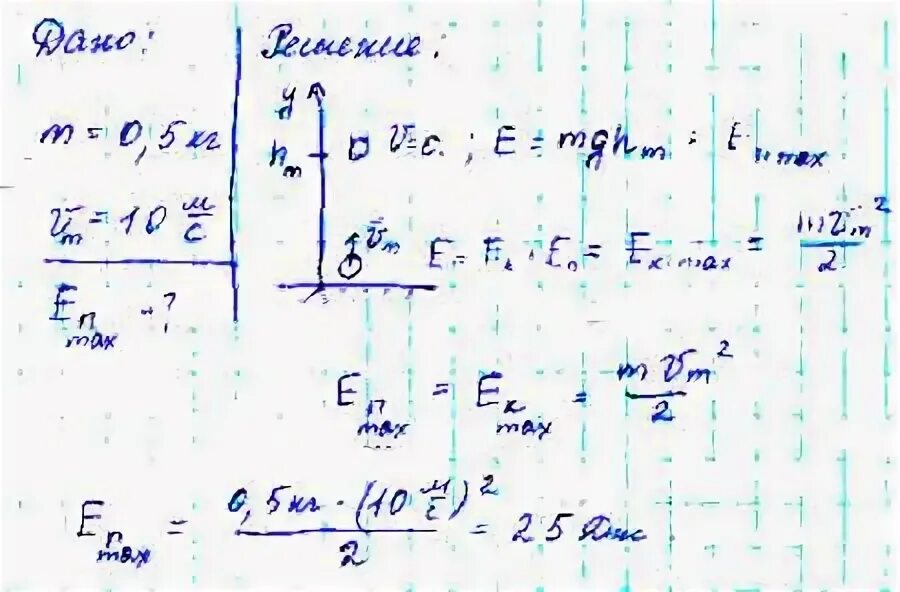 Дано:
m = 0,5 кг
v̄m = 10 м/с
Eп max - ?
Решение:
y
hm
v = 0 ; E = mghm = Eп max
v̄m
E = Eк + Eп = Eк max = mv̄m²/2
Eп max = Eк max = mvm²/2
Eп max = 0,5 кг · (10 м/с)²/2 = 25 Дж